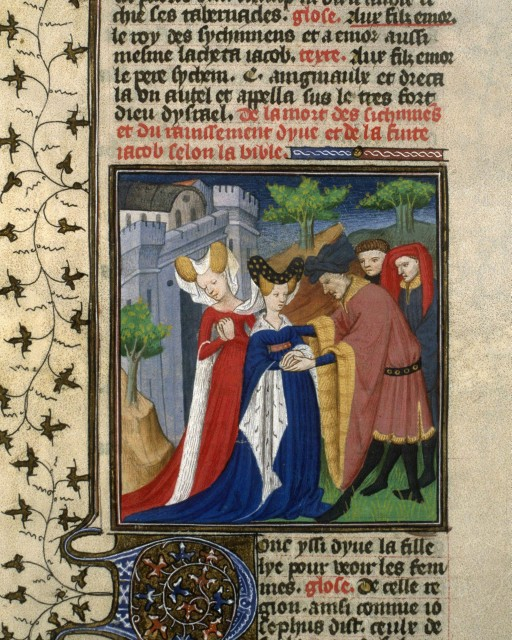 chie ses tabernacles. glose. Aux filz emor.
le roy des sychimiens et a emor aussi
mesme lacheta iacob. texte. Aux filz emor
le pere sychem. Et
la un autel et appella sus le tres fort
dieu disrael. De la mort des sichimies
et du rauissement dyne et de la fuite
iacob selon la bible.
Donc yssi dyne la fille
lye pour veoir les fem
mes. glose. De celle re
gion. ainsi comme io
sephus dist. ceulx de